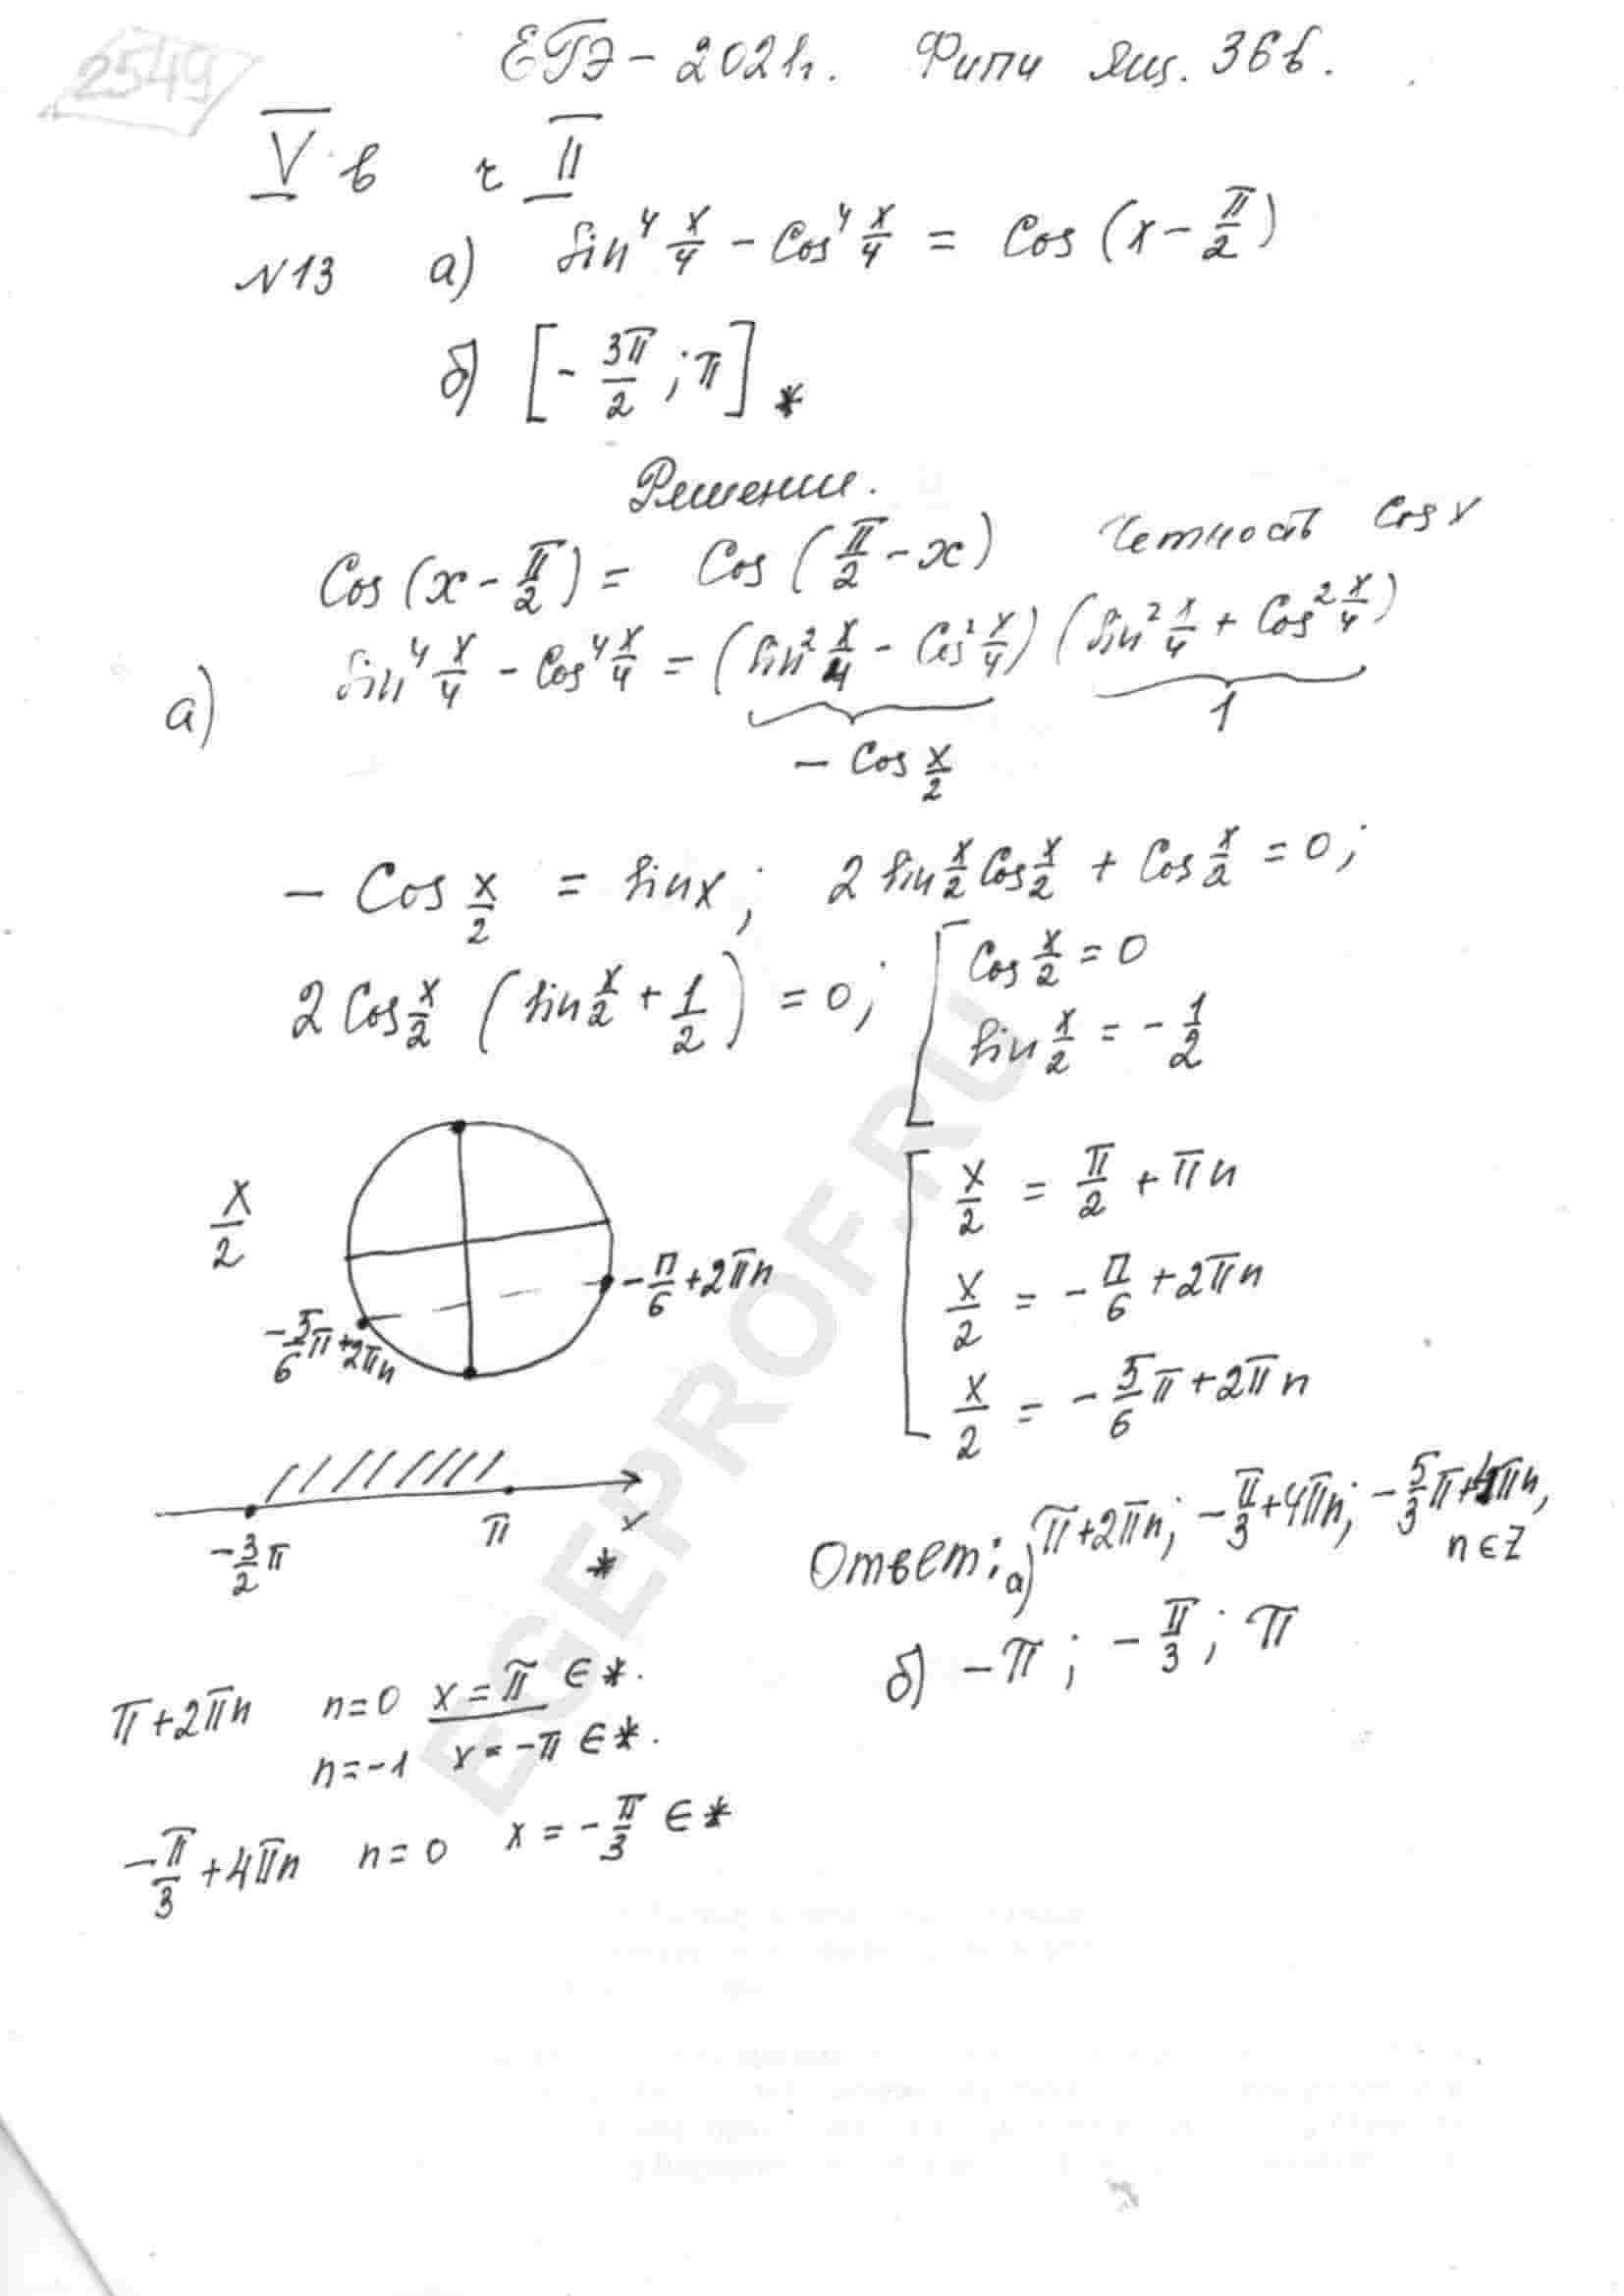 2549
ЕГЭ - 2021г. Фипи Ящ. 36в.
V в ч II
N13 а) sin⁴ x/4 - Cos⁴ x/4 = Cos (x - π/2)
б) [- 3π/2 ; π] *
Решение.
Cos (x - π/2) = Cos (π/2 - x) четность Cos x
а) sin⁴ x/4 - Cos⁴ x/4 = (sin² x/4 - Cos² x/4) (sin² x/4 + Cos² x/4)
1
- Cos x/2
- Cos x/2 = sin x; 2 sin x/2 Cos x/2 + Cos x/2 = 0;
2 Cos x/2 (sin x/2 + 1/2) = 0; [ Cos x/2 = 0
sin x/2 = - 1/2
x/2
[ x/2 = π/2 + πn
x/2 = - π/6 + 2πn
x/2 = - 5/6 π + 2πn
- π/6 + 2πn
- 5/6 π + 2πn
- 3/2 π π x
*
Ответ: а) π + 2πn; - π/3 + 4πn; - 5/3 π + 4πn,
n ∈ Z
б) - π; - π/3; π
π + 2πn n = 0 x = π ∈ *.
n = -1 x = - π ∈ *.
- π/3 + 4πn n = 0 x = - π/3 ∈ *
EGEPROF.RU